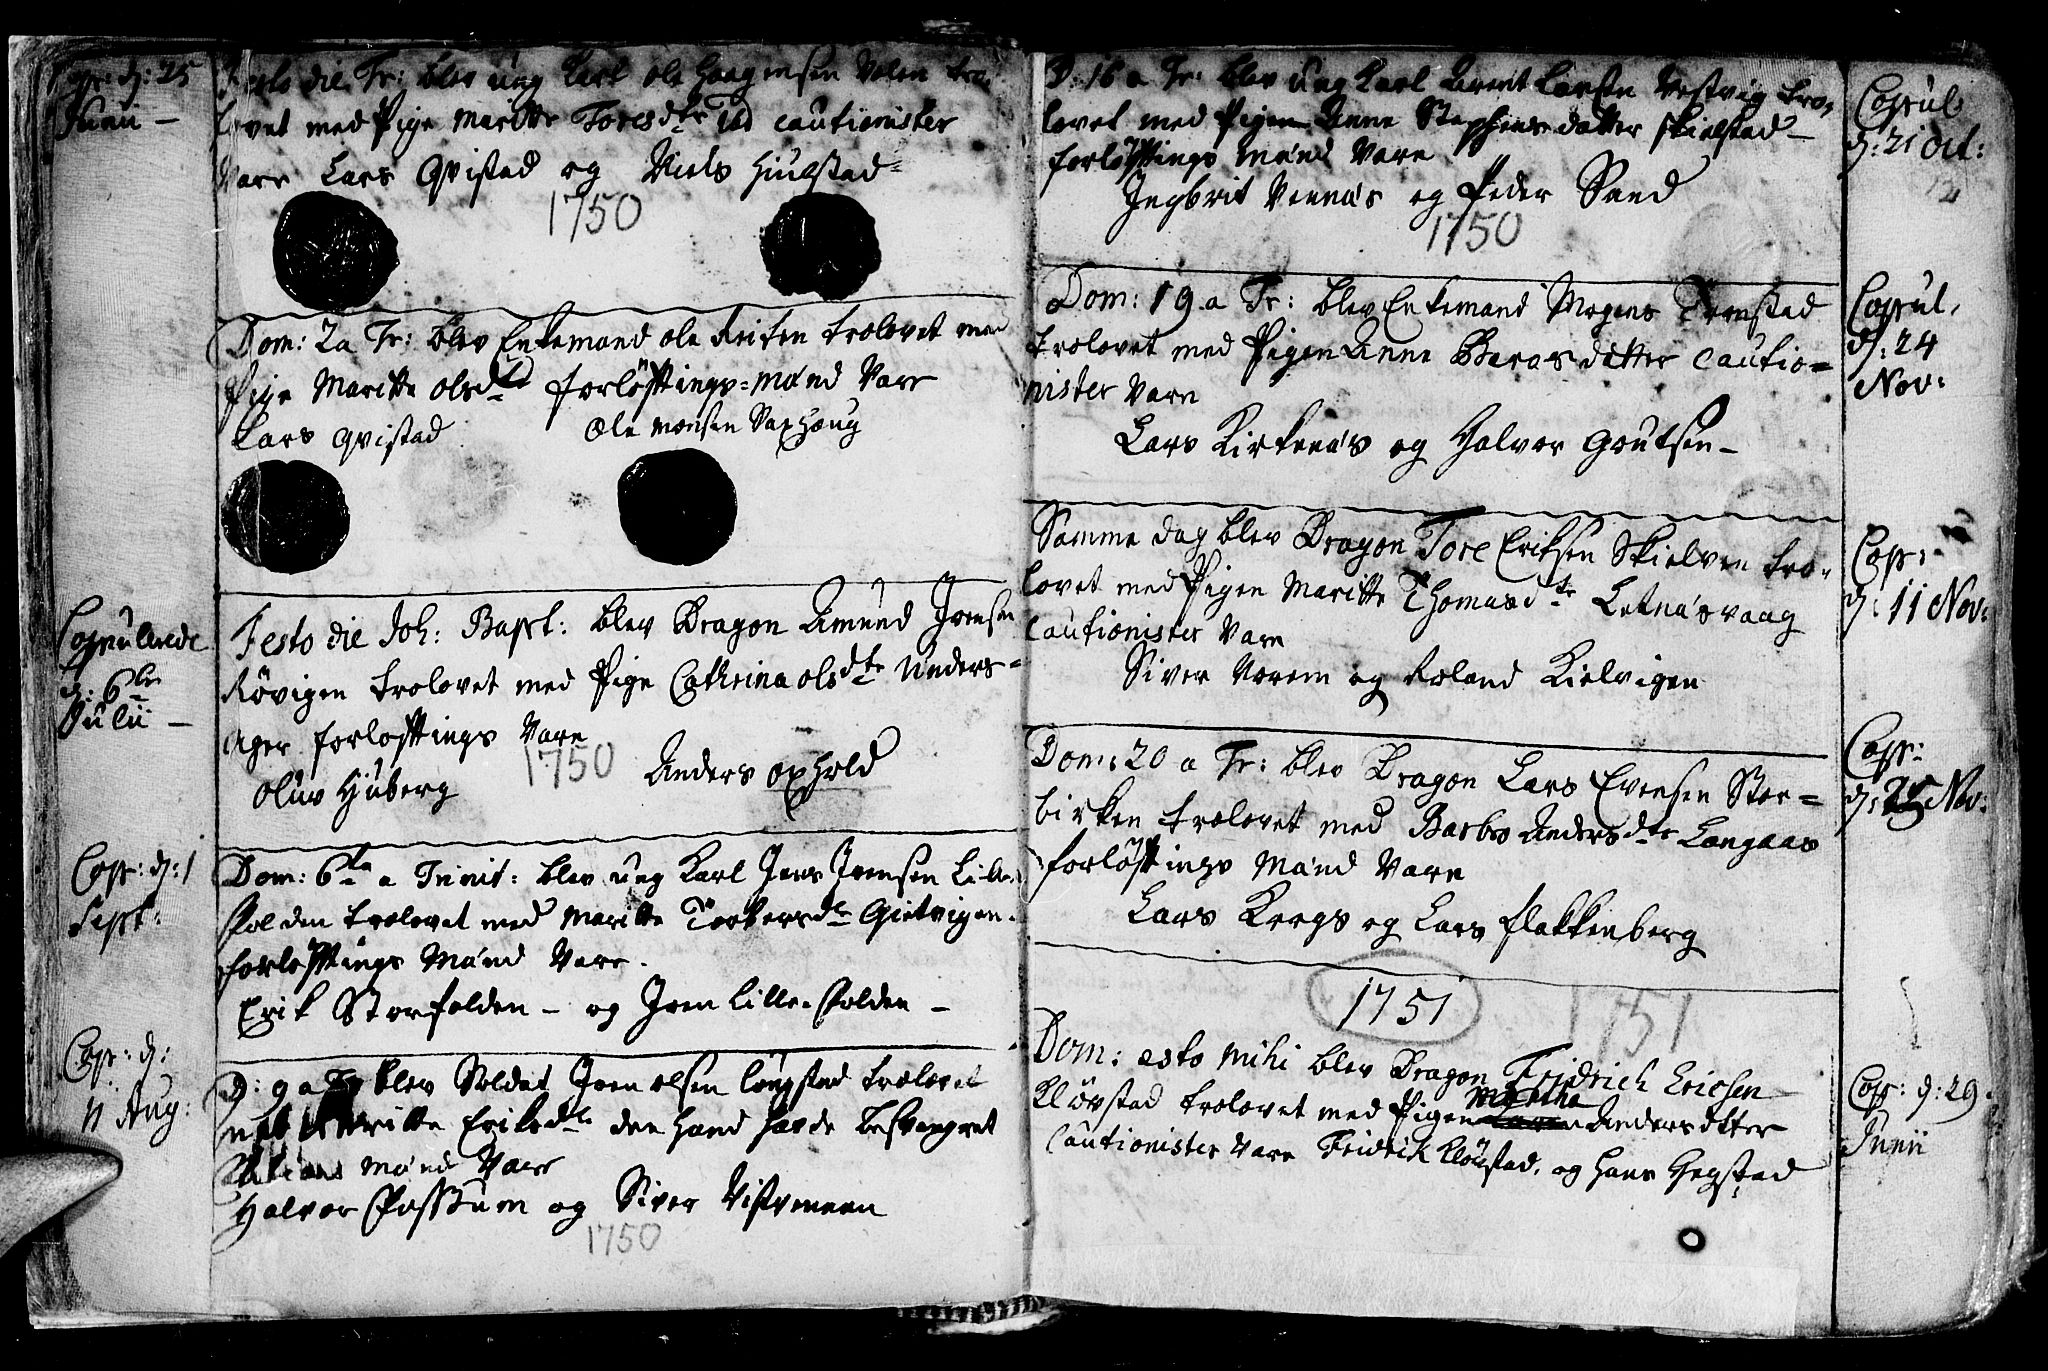 Cop: d: 25
Junii —
Festo die Tr: blev ung Karl Ole Haagensen Volen tro-
lovet med Pige Maritte Toresdtr Ibd cautionister
vare Lars Qvistad og Niels Hiulstad
1750
Dom: 2 a Tr: blev Enkemand Ole Reiten trolovet med
Pige Maritte Olsdtr forløftings-Mænd vare
Lars Qvistad
Ole Monsen Saxhaug
Copulerede
d: 6te
Julii —
Festo die Joh: Bapt: blev Dragon Amund Joensen
Røvigen trolovet med Pige Cathrina Olsdtr Unders-
Ager forløftings vare
1750
Oluv Hüberg
Anders Ophold
Cop: d: 1
Sept:
Dom: 6ta a Trinit: blev ung Karl Jens Joensen Lille-
folden trolovet med Maritte Torkersdtr Gietvigen.
forløftings Mænd vare.
Erik Storfolden — og Joen Lille-folden —
Cop: d:
11 Aug:
D: 9 a Tr blev Soldat Joen Olsen Løgstad trolovet
med Maritte Eriksdtr den hand havde besvangret
Mænd vare
Halvor Possum og Siver Vistvenen
1750
D: 16 a Tr: blev ung Karl Arent Larsen Vestvig tro-
lovet med Pigen Anne Stephensdatter Skielstad —
forløftings Mænd vare
Ingbrit Vennæs og Peder Sand
1750
Copul:
d: 21 Oct:
Dom: 19 a Tr: blev Enkemand Mogens Tronstad
trolovet med Pigen Anne Barosdatter Cautio-
nister vare
Lars Kirkenæs og Halvor Goutsen —
Copul,
d: 24
Nov:
Samme dag blev Dragon Tore Eriksen Skielven tro-
lovet med Pigen Maritte Thomasdtr Letnæsvaag
Cautionister vare
Siver Vorem og Roland Kielvigen
Cop:
d: 11 Nov:
Dom: 20 a Tr: blev Dragon Lars Evensen Stor-
birken trolovet med Barbro Andersdtr Langaas
forløftings Mænd vare
Lars Kregs og Lars Flakkenberg
Cop:
d: 25 Nov:
1751
1751
Dom: esto mihi blev Dragon Fridrich Ericsen
Kløvstad trolovet med Pigen Martha Andersdatter
Cautionister vare Fridrik Kløvstad, og Hans Hegstad
Cop: d: 29
Junii